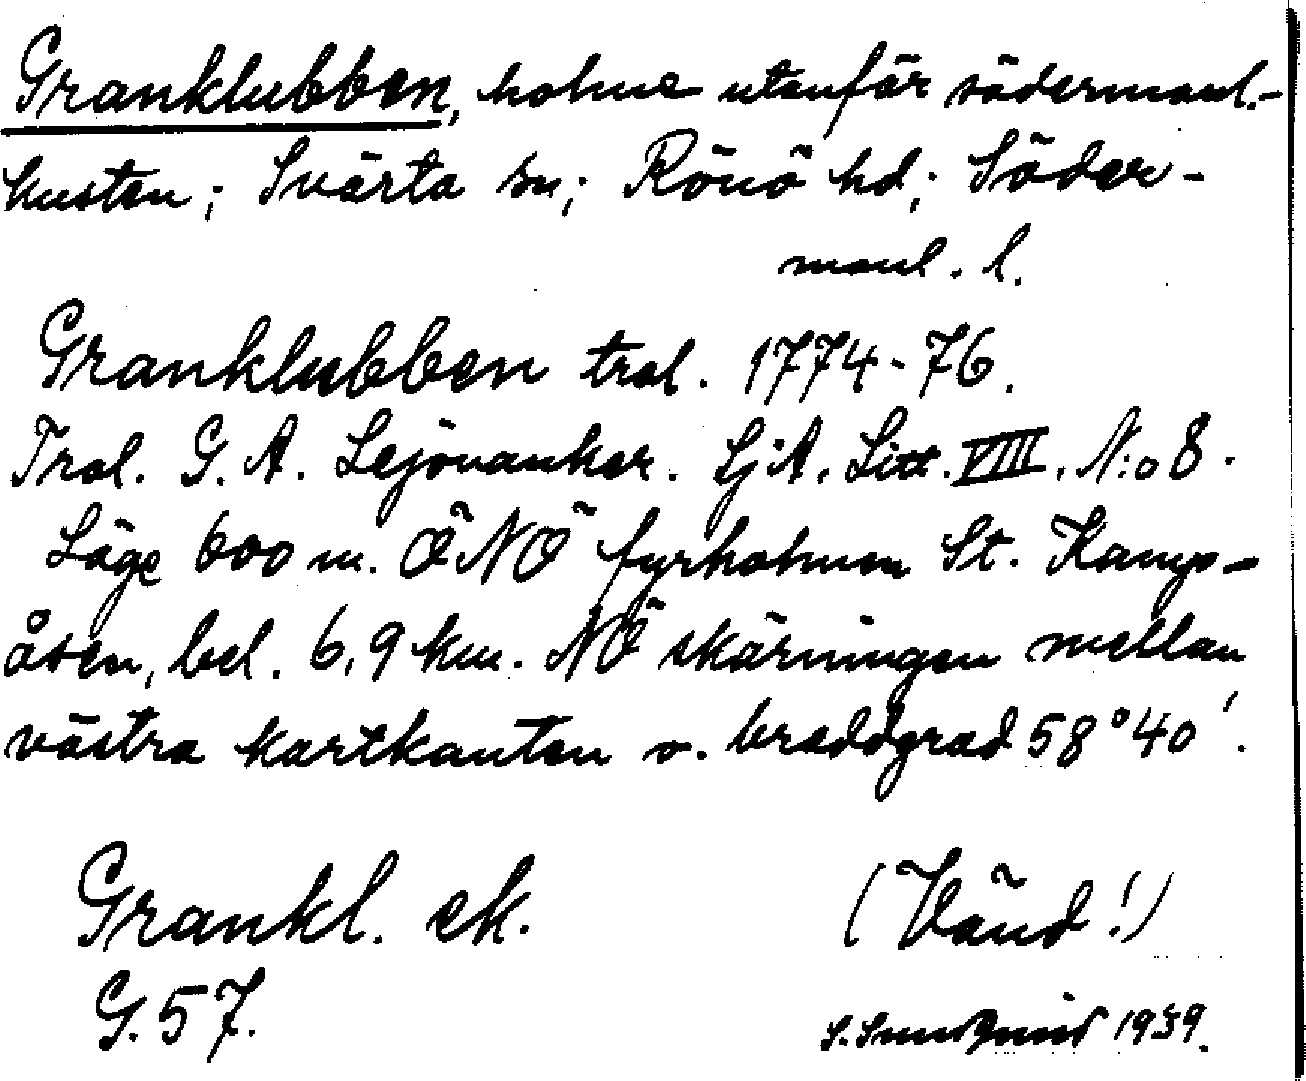 Granklubben, holme utanför södermanl.-
kusten; Svärta sn; Rönö hd; Söder-
manl. l.
Granklubben tral. 1774-76.
Tral. G. A. Lejonanker. SjA. Litt. VIII. N:o 8.
Läge 600 m. ÖNÖ fyrholmen St. Kamp-
åsen, bel. 6,9 km. NÖ skärningen mellan
västra kartkanten o. breddgrad 58°40'.
Grankl. ek.
(Vänd!)
G. 57.
S. Sundqvist 1939.